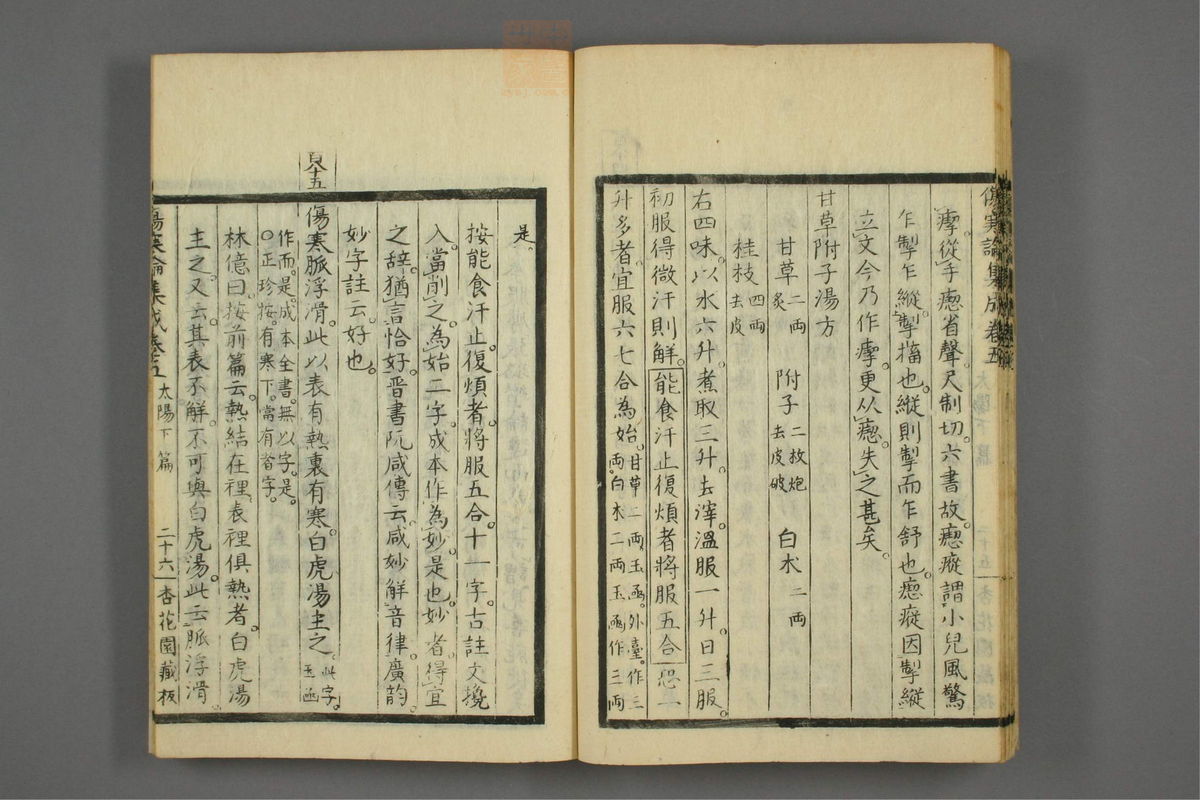 傷寒論集成卷五
㾭從手瘛省聲尺制切六書故瘛瘲謂小兒風驚
乍掣乍縱掣搐也縱則掣而乍舒也瘛瘲因掣縱
立文今乃作㾭更从瘛失之甚矣
甘草附子湯方
甘草二兩炙 附子二枚炮去皮破 白朮二兩
桂枝四兩去皮
右四味以水六升煮取三升去滓溫服一升日三服
初服得微汗則解能食汗止復煩者將服五合恐一
升多者宜服六七合為始甘草二兩玉函外臺作三兩白朮二兩玉函作三兩
是
按能食汗止復煩者將服五合十一字古註文攙
入當削之為始二字成本作為妙是也妙者得宜
之辭猶言恰好晉書阮咸傳云咸妙解音律廣韵
妙字註云好也
頁十五
傷寒脈浮滑此以表有熱裏有寒白虎湯主之此字玉函
作而是成本全書無以字是
○正珍按有寒下當有省字
林億曰按前篇云熱結在裡表裡俱熱者白虎湯
主之又云其表不解不可與白虎湯此云脈浮滑
傷寒論集成卷五 太陽下篇 二十六 杏花園藏板